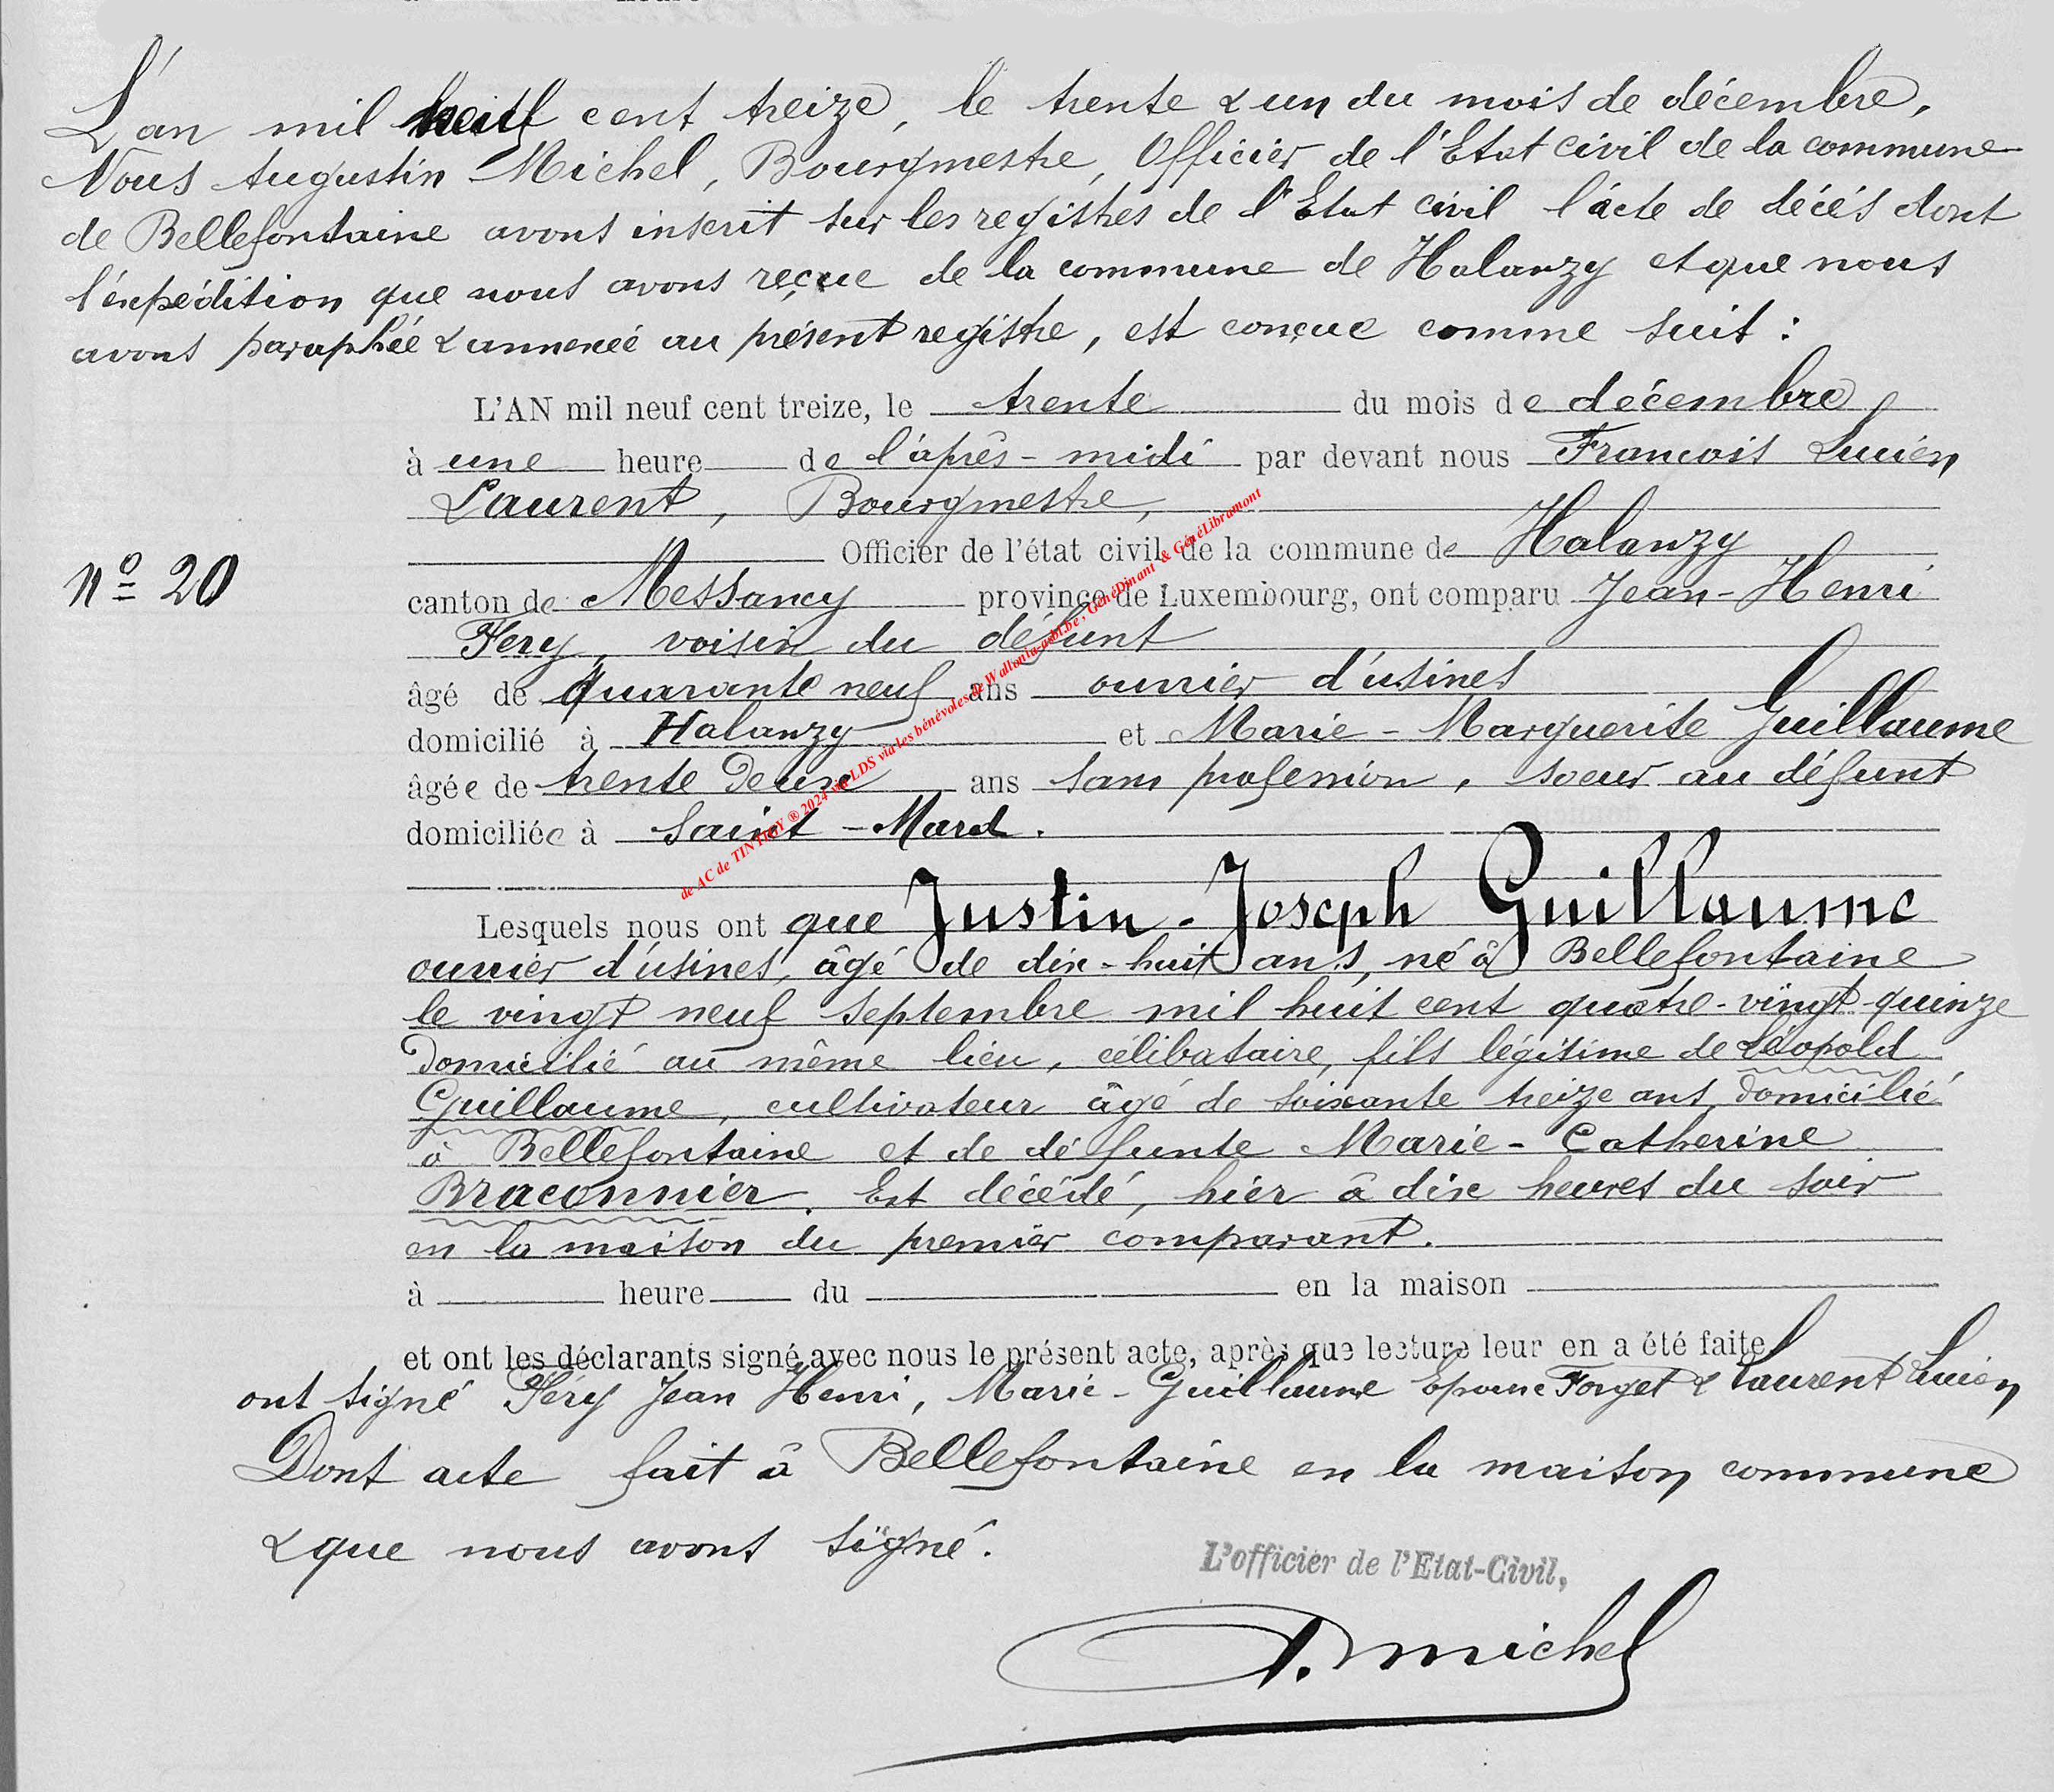 L'an mil neuf cent treize, le trente & un du mois de décembre,
Nous Augustin Michel, Bourgmestre, Officier de l'Etat civil de la commune
de Bellefontaine avons inscrit sur les registres de l'Etat civil l'acte de décés dont
l'expédition que nous avons reçue de la commune de Halanzy et que nous
avons paraphée & annexée au présent registre, est conçue comme suit :
L'AN mil neuf cent treize, le trente du mois de décembre
à une heure de l'après-midi par devant nous Francois Lucien
Laurent, Bourgmestre,
Officier de l'état civil de la commune de Halanzy
nº 20
canton de Messancy province de Luxembourg, ont comparu Jean-Henri
Fery, voisin du défunt
âgé de quarante neuf ans ouvrier d'usines
domicilié à Halanzy et Marie-Marguerite Guillaume
âgée de trente deux ans sans profession, soeur au défunt
domiciliée à Saint-Mard.
de AC de TINTIGY ® 2024 via LDS via les bénévoles de Wallonia-asbl.be, GénéDinant & GénéLibramont
Lesquels nous ont que Justin-Joseph Guillaume
ouvrier d'usines, âgé de dix-huit ans, né à Bellefontaine
le vingt neuf septembre mil huit cent quatre-vingt-quinze
domicilié au même lieu, célibataire, fils légitime de Léopold
Guillaume, cultivateur âgé de soixante treize ans, domicilié
à Bellefontaine et de défunte Marie-Catherine
Braconnier. Est décédé, hier à dix heures du soir
en la maison du premier comparant.
à heure du en la maison
et ont les déclarants signé avec nous le présent acte, après que lecture leur en a été faite
ont signé Féry Jean Henri, Marie-Guillaume Epouse Forget & Laurent Lucien
Dont acte fait à Bellefontaine en la maison commune
& que nous avons signé.
L'officier de l'Etat-Civil,
A. Michel